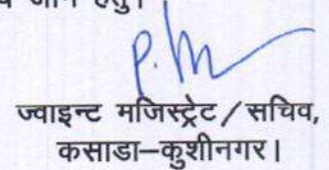 जाने हेतु।
ज्वाइन्ट मजिस्ट्रेट/सचिव,
कसाडा–कुशीनगर।